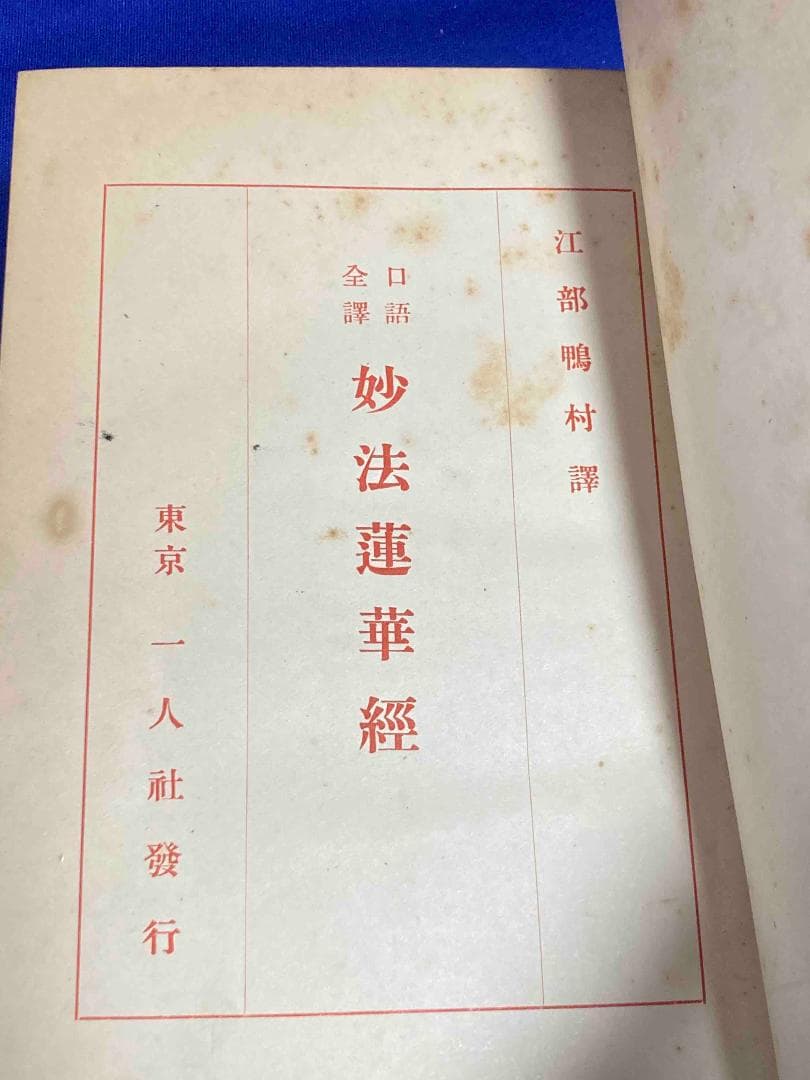 江部鴨村譯
口語
全譯
妙法蓮華經
東京 一人社發行